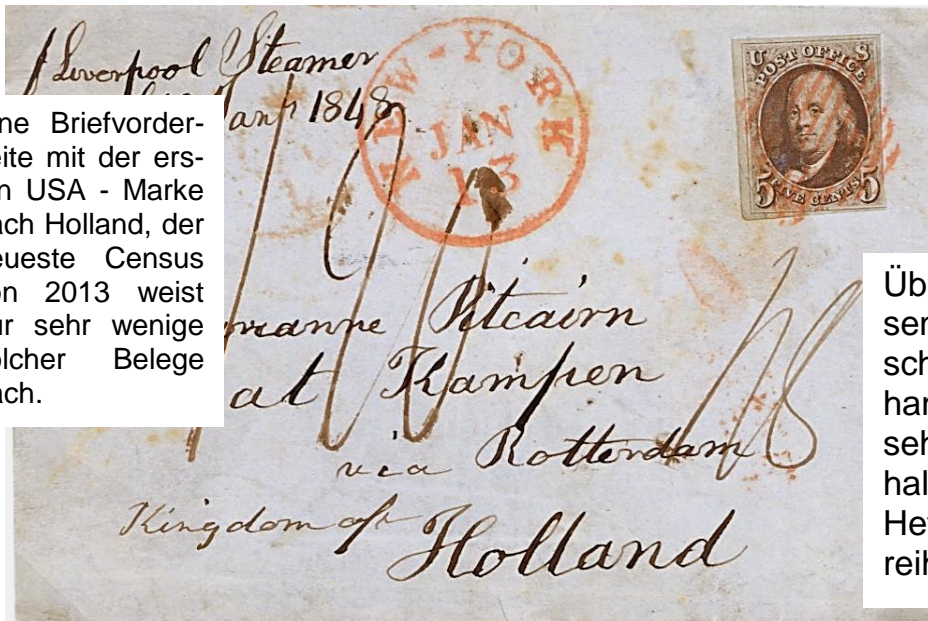 Liverpool Steamer
1848
NEW-YORK
JAN
13
U S
POST OFFICE
5 FIVE CENTS 5
ne Briefvorder-
eite mit der ers-
n USA - Marke
ach Holland, der
eueste Census
on 2013 weist
ur sehr wenige
olcher Belege
ach.
Pitcairn
at Kampen
via Rotterdam
Kingdom of
Holland
Üb
ser
sch
har
seh
hal
He
reih